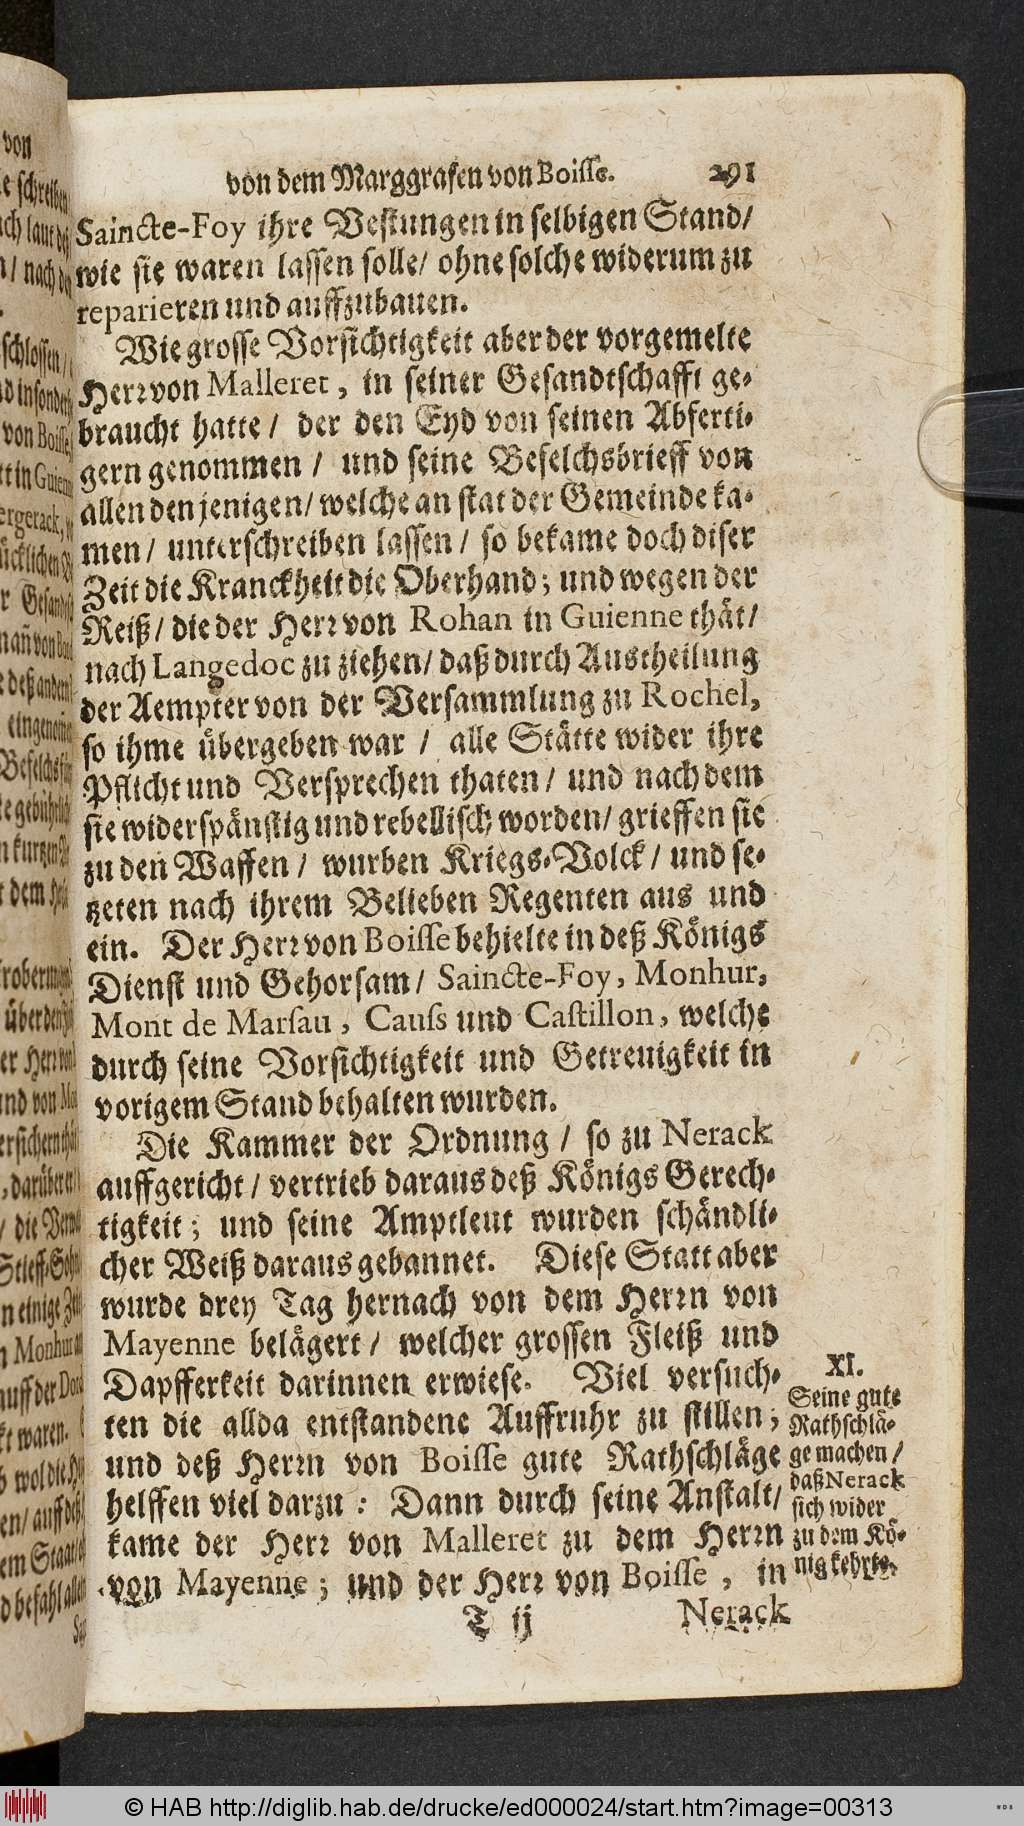 von dem Marggrafen von Boisse. 291
Saincte-Foy ihre Vestungen in selbigen Stand/
wie sie waren lassen solle/ ohne solche widerum zu
reparieren und auffzubauen.
Wie grosse Vorsichtigkeit aber der vorgemelte
Herr von Malleret, in seiner Gesandtschafft ge-
braucht hatte/ der den Eyd von seinen Abferti-
gern genommen / und seine Befelchsbrieff von
allen den jenigen/ welche an stat der Gemeinde ka-
men/ unterschreiben lassen/ so bekame doch diser
Zeit die Kranckheit die Oberhand; und wegen der
Reiß/ die der Herr von Rohan in Guienne thät/
nach Langedoc zu ziehen/ daß durch Austheilung
der Aempter von der Versammlung zu Rochel,
so ihme übergeben war / alle Stätte wider ihre
Pflicht und Versprechen thaten/ und nach dem
sie widerspänstig und rebellisch worden/ grieffen sie
zu den Waffen / wurben Kriegs-Volck / und se-
tzeten nach ihrem Belieben Regenten aus und
ein. Der Herr von Boisse behielte in deß Königs
Dienst und Gehorsam/ Saincte-Foy, Monhur,
Mont de Marsau, Causs und Castillon, welche
durch seine Vorsichtigkeit und Getreuigkeit in
vorigem Stand behalten wurden.
Die Kammer der Ordnung / so zu Nerack
auffgericht / vertrieb daraus deß Königs Gerech-
tigkeit; und seine Amptleut wurden schändli-
cher Weiß daraus gebannet. Diese Statt aber
wurde drey Tag hernach von dem Herrn von
Mayenne belägert / welcher grossen Fleiß und
Dapfferkeit darinnen erwiese. Viel versuch-
ten die allda entstandene Auffruhr zu stillen;
und deß Herrn von Boisse gute Rathschläge
helffen viel darzu: Dann durch seine Anstalt/
kame der Herr von Malleret zu dem Herrn
von Mayenne; und der Herr von Boisse, in
XI.
Seine gute
Rathschlä-
ge machen/
daß Nerack
sich wider
zu dem Kö-
nig kehrte.
T ij Nerack
© HAB http://diglib.hab.de/drucke/ed000024/start.htm?image=00313